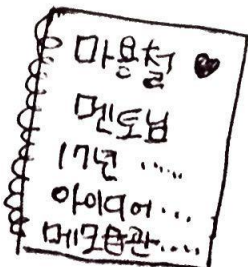 마용철 ♥
멘토님
17년 .....
아이디어...
메모습관....